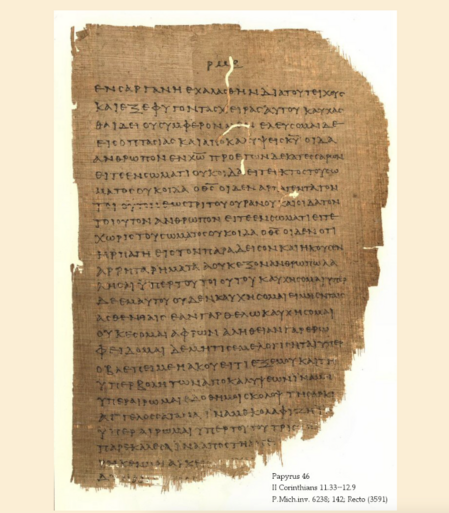 ρμε
ΕΝ ϹΑΡΓΑΝΗ ΕΧΑΛΑϹΘΗΝ ΔΙΑ ΤΟΥ ΤΕΙΧΟΥϹ
ΚΑΙ ΕΞΕΦΥΓΟΝ ΤΑϹ ΧΕΙΡΑϹ ΑΥΤΟΥ ΚΑΥΧΑϹ
ΘΑΙ ΔΕΙ ΟΥ ϹΥΜΦΕΡΟΝ ΕΛΕΥϹΟΜΑΙ ΔΕ
ΕΙϹ ΟΠΤΑϹΙΑϹ ΚΑΙ ΑΠΟΚΑΛΥΨΕΙϹ Κ̅Υ̅ ΟΙΔΑ
ΑΝΘΡΩΠΟΝ ΕΝ ΠΡΟ ΕΤΩΝ ΔΕΚΑΤΕϹϹΑΡΩΝ
ΕΙΤΕ ΕΝ ϹΩΜΑΤΙ ΟΥΚ ΟΙΔΑ ΕΙΤΕ ΕΚΤΟϹ ΤΟΥ ϹΩ
ΜΑΤΟϹ ΟΥΚ ΟΙΔΑ Ο Θ̅Ϲ̅ ΟΙΔΕΝ ΑΡΠΑΓΕΝΤΑ ΤΟΝ
ΤΟΙΟΥΤΟΝ ΕΩϹ ΤΡΙΤΟΥ ΟΥΡΑΝΟΥ ΚΑΙ ΟΙΔΑ ΤΟΝ
ΤΟΙΟΥΤΟΝ ΑΝΘΡΩΠΟΝ ΕΙΤΕ ΕΝ ϹΩΜΑΤΙ ΕΙΤΕ
ΧΩΡΙϹ ΤΟΥ ϹΩΜΑΤΟϹ ΟΥΚ ΟΙΔΑ Ο Θ̅Ϲ̅ ΟΙΔΕΝ ΟΤΙ
ΗΡΠΑΓΗ ΕΙϹ ΤΟΝ ΠΑΡΑΔΕΙϹΟΝ ΚΑΙ ΗΚΟΥϹΕΝ
ΑΡΡΗΤΑ ΡΗΜΑΤΑ Α ΟΥΚ ΕΞΟΝ ΑΝΘΡΩΠΩ ΛΑ
ΛΗϹΑΙ ΥΠΕΡ ΤΟΥ ΤΟΙΟΥΤΟΥ ΚΑΥΧΗϹΟΜΑΙ ΥΠΕΡ
ΔΕ ΕΜΑΥΤΟΥ ΟΥΔΕΝ ΚΑΥΧΗϹΟΜΑΙ ΕΙ ΜΗ ΕΝ ΤΑΙϹ
ΑϹΘΕΝΕΙΑΙϹ ΕΑΝ ΓΑΡ ΘΕΛΩ ΚΑΥΧΗϹΟΜΑΙ
ΟΥΚ ΕϹΟΜΑΙ ΑΦΡΩΝ ΑΛΗΘΕΙΑΝ ΓΑΡ ΕΡΩ
ΦΕΙΔΟΜΑΙ ΔΕ ΜΗ ΤΙϹ ΕΜΕ ΛΟΓΙϹΗΤΑΙ ΥΠΕΡ
Ο ΒΛΕΠΕΙ ΜΕ Η ΑΚΟΥΕΙ ΤΙ ΕΞ ΕΜΟΥ ΚΑΙ ΤΗ
ΥΠΕΡΒΟΛΗ ΤΩΝ ΑΠΟΚΑΛΥΨΕΩΝ ΙΝΑ ΜΗ
ΥΠΕΡΑΙΡΩΜΑΙ ΕΔΟΘΗ ΜΟΙ ϹΚΟΛΟΨ ΤΗ ϹΑΡΚΙ
ΑΓΓΕΛΟϹ ϹΑΤΑΝΑ ΙΝΑ ΜΕ ΚΟΛΑΦΙΖΗ
ΥΠΕΡΑΙΡΩΜΑΙ ΥΠΕΡ ΤΟΥΤΟΥ ΤΡΙϹ
ΠΑΡΕΚΑΛΕϹΑ ΙΝΑ ΑΠΟϹΤΗ
Papyrus 46
II Corinthians 11.33–12.9
P.Mich.inv. 6238; 142; Recto (3591)